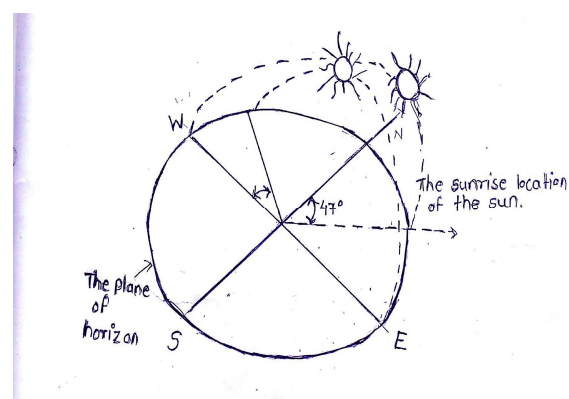 W
N
47°
The sunrise location
of the sun.
The plane
of
horizon
S
E